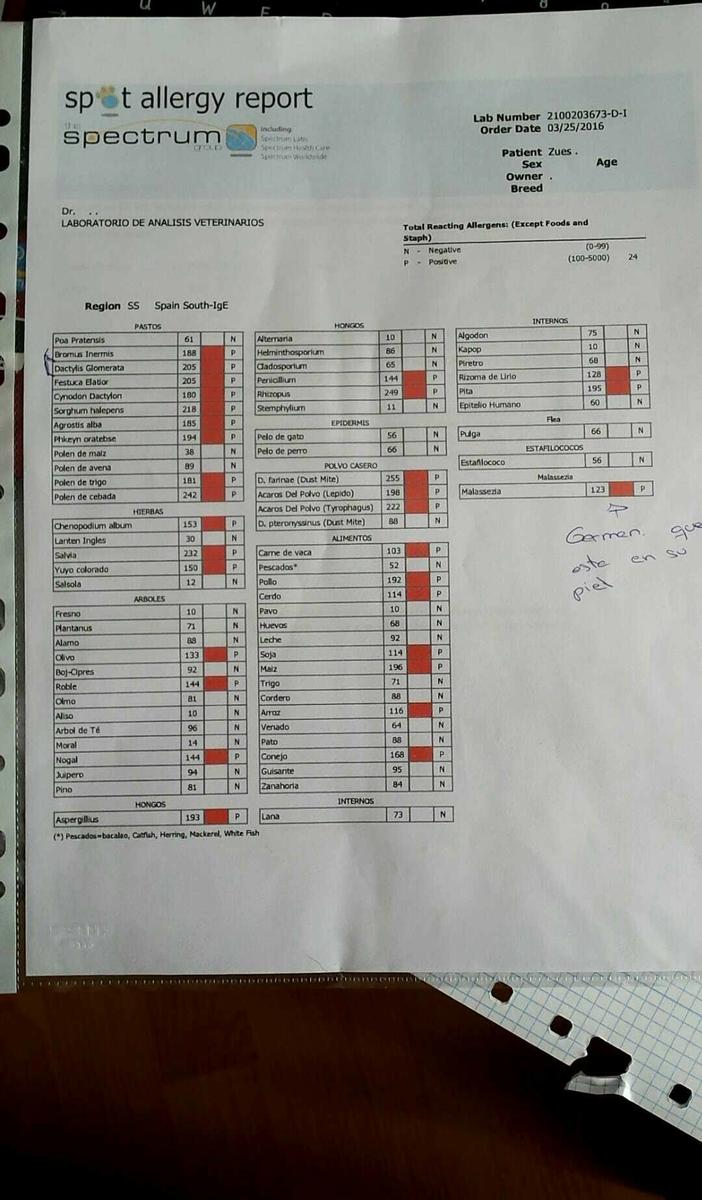 W E
spot allergy report
the
spectrum
group
Including
Spectrum Labs
Spectrum Health Care
Spectrum Worldwide
Lab Number 2100203673-D-I
Order Date 03/25/2016
Patient Zues .
Sex Age
Owner .
Breed
Dr. . .
LABORATORIO DE ANALISIS VETERINARIOS
Total Reacting Allergens: (Except Foods and
Staph)
N - Negative (0-99)
P - Positive (100-5000) 24
Region SS Spain South-IgE
PASTOS
Poa Pratensis 61 N
Bromus Inermis 188 P
Dactylis Glomerata 205 P
Festuca Elatior 205 P
Cynodon Dactylon 180 P
Sorghum halepens 218 P
Agrostis alba 185 P
Phkeyn oratebse 194 P
Polen de maiz 38 N
Polen de avena 89 N
Polen de trigo 181 P
Polen de cebada 242 P
HIERBAS
Chenopodium album 153 P
Lanten Ingles 30 N
Salvia 232 P
Yuyo colorado 150 P
Salsola 12 N
ARBOLES
Fresno 10 N
Plantanus 71 N
Alamo 88 N
Olivo 133 P
Boj-Cipres 92 N
Roble 144 P
Olmo 81 N
Aliso 10 N
Arbol de Té 96 N
Moral 14 N
Nogal 144 P
Juipero 94 N
Pino 81 N
HONGOS
Aspergillius 193 P
(*) Pescados=bacalao, Catfish, Herring, Mackerel, White Fish
HONGOS
Alternaria 10 N
Helminthosporium 86 N
Cladosporium 65 N
Penicillium 144 P
Rhizopus 249 P
Stemphylium 11 N
EPIDERMIS
Pelo de gato 56 N
Pelo de perro 66 N
POLVO CASERO
D. farinae (Dust Mite) 255 P
Acaros Del Polvo (Lepido) 198 P
Acaros Del Polvo (Tyrophagus) 222 P
D. pteronyssinus (Dust Mite) 88 N
ALIMENTOS
Carne de vaca 103 P
Pescados* 52 N
Pollo 192 P
Cerdo 114 P
Pavo 10 N
Huevos 68 N
Leche 92 N
Soja 114 P
Maiz 196 P
Trigo 71 N
Cordero 88 N
Arroz 116 P
Venado 64 N
Pato 88 N
Conejo 168 P
Guisante 95 N
Zanahoria 84 N
INTERNOS
Lana 73 N
INTERNOS
Algodon 75 N
Kapop 10 N
Piretro 68 N
Rizoma de Lirio 128 P
Pita 195 P
Epitelio Humano 60 N
Flea
Pulga 66 N
ESTAFILOCOCOS
Estafilococo 56 N
Malassezia
Malassezia 123 P
Germen. que
esta en su
piel